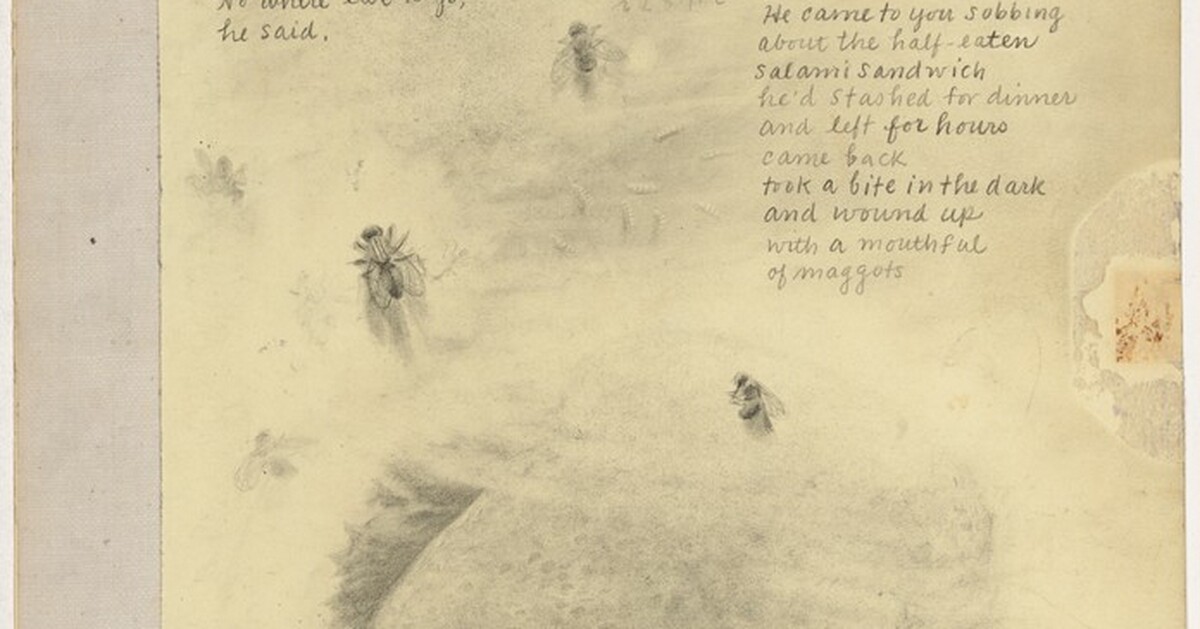 No where else to go,
he said.
He came to you sobbing
about the half-eaten
salami sandwich
he'd stashed for dinner
and left for hours
came back
took a bite in the dark
and wound up
with a mouthful
of maggots